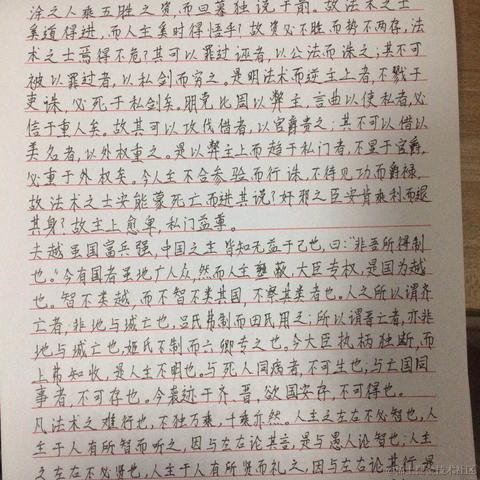 涂之人乘五胜之资,而旦暮独说于前。故法术之士
奚道得进,而人主奚时得悟乎?故资必不胜而势不两存,法
术之士焉得不危?其可以罪过诬者,以公法而诛之;其不可
被以罪过者,以私剑而穷之。是明法术而逆主上者,不戮于
吏诛,必死于私剑矣。朋党比周以弊主,言曲以使私者,必
信于重人矣。故其可以攻伐借者,以官爵贵之;其不可借以
美名者,以外权重之。是以弊主上而趋于私门者,不显于官爵,
必重于外权矣。今人主不合参验而行诛,不待见功而爵禄,
故法术之士安能蒙死亡而进其说?奸邪之臣安肯乘利而退
其身?故主上愈卑,私门益尊。
夫越虽国富兵强,中国之主皆知无益于己也,曰:“非吾所得制
也。”今有国者虽地广人众,然而人主壅蔽,大臣专权,是国为越
也。智不类越,而不智不类其国,不察其类者也。人之所以谓齐
亡者,非地与城亡也,吕氏弗制而田氏用之;所以谓晋亡者,亦非
地与城亡也,姬氏不制而六卿专之也。今大臣执柄独断,而
上弗知收,是人主不明也。与死人同病者,不可生也;与亡国同
事者,不可存也。今袭迹于齐、晋,欲国安存,不可得也。
凡法术之难行也,不独万乘,千乘亦然。人主之左右不必智也,人
主于人有所智而听之,因与左右论其言,是与愚人论智也;人主
之左右不必贤也,人主于人有所贤而礼之,因与左右论其行,是